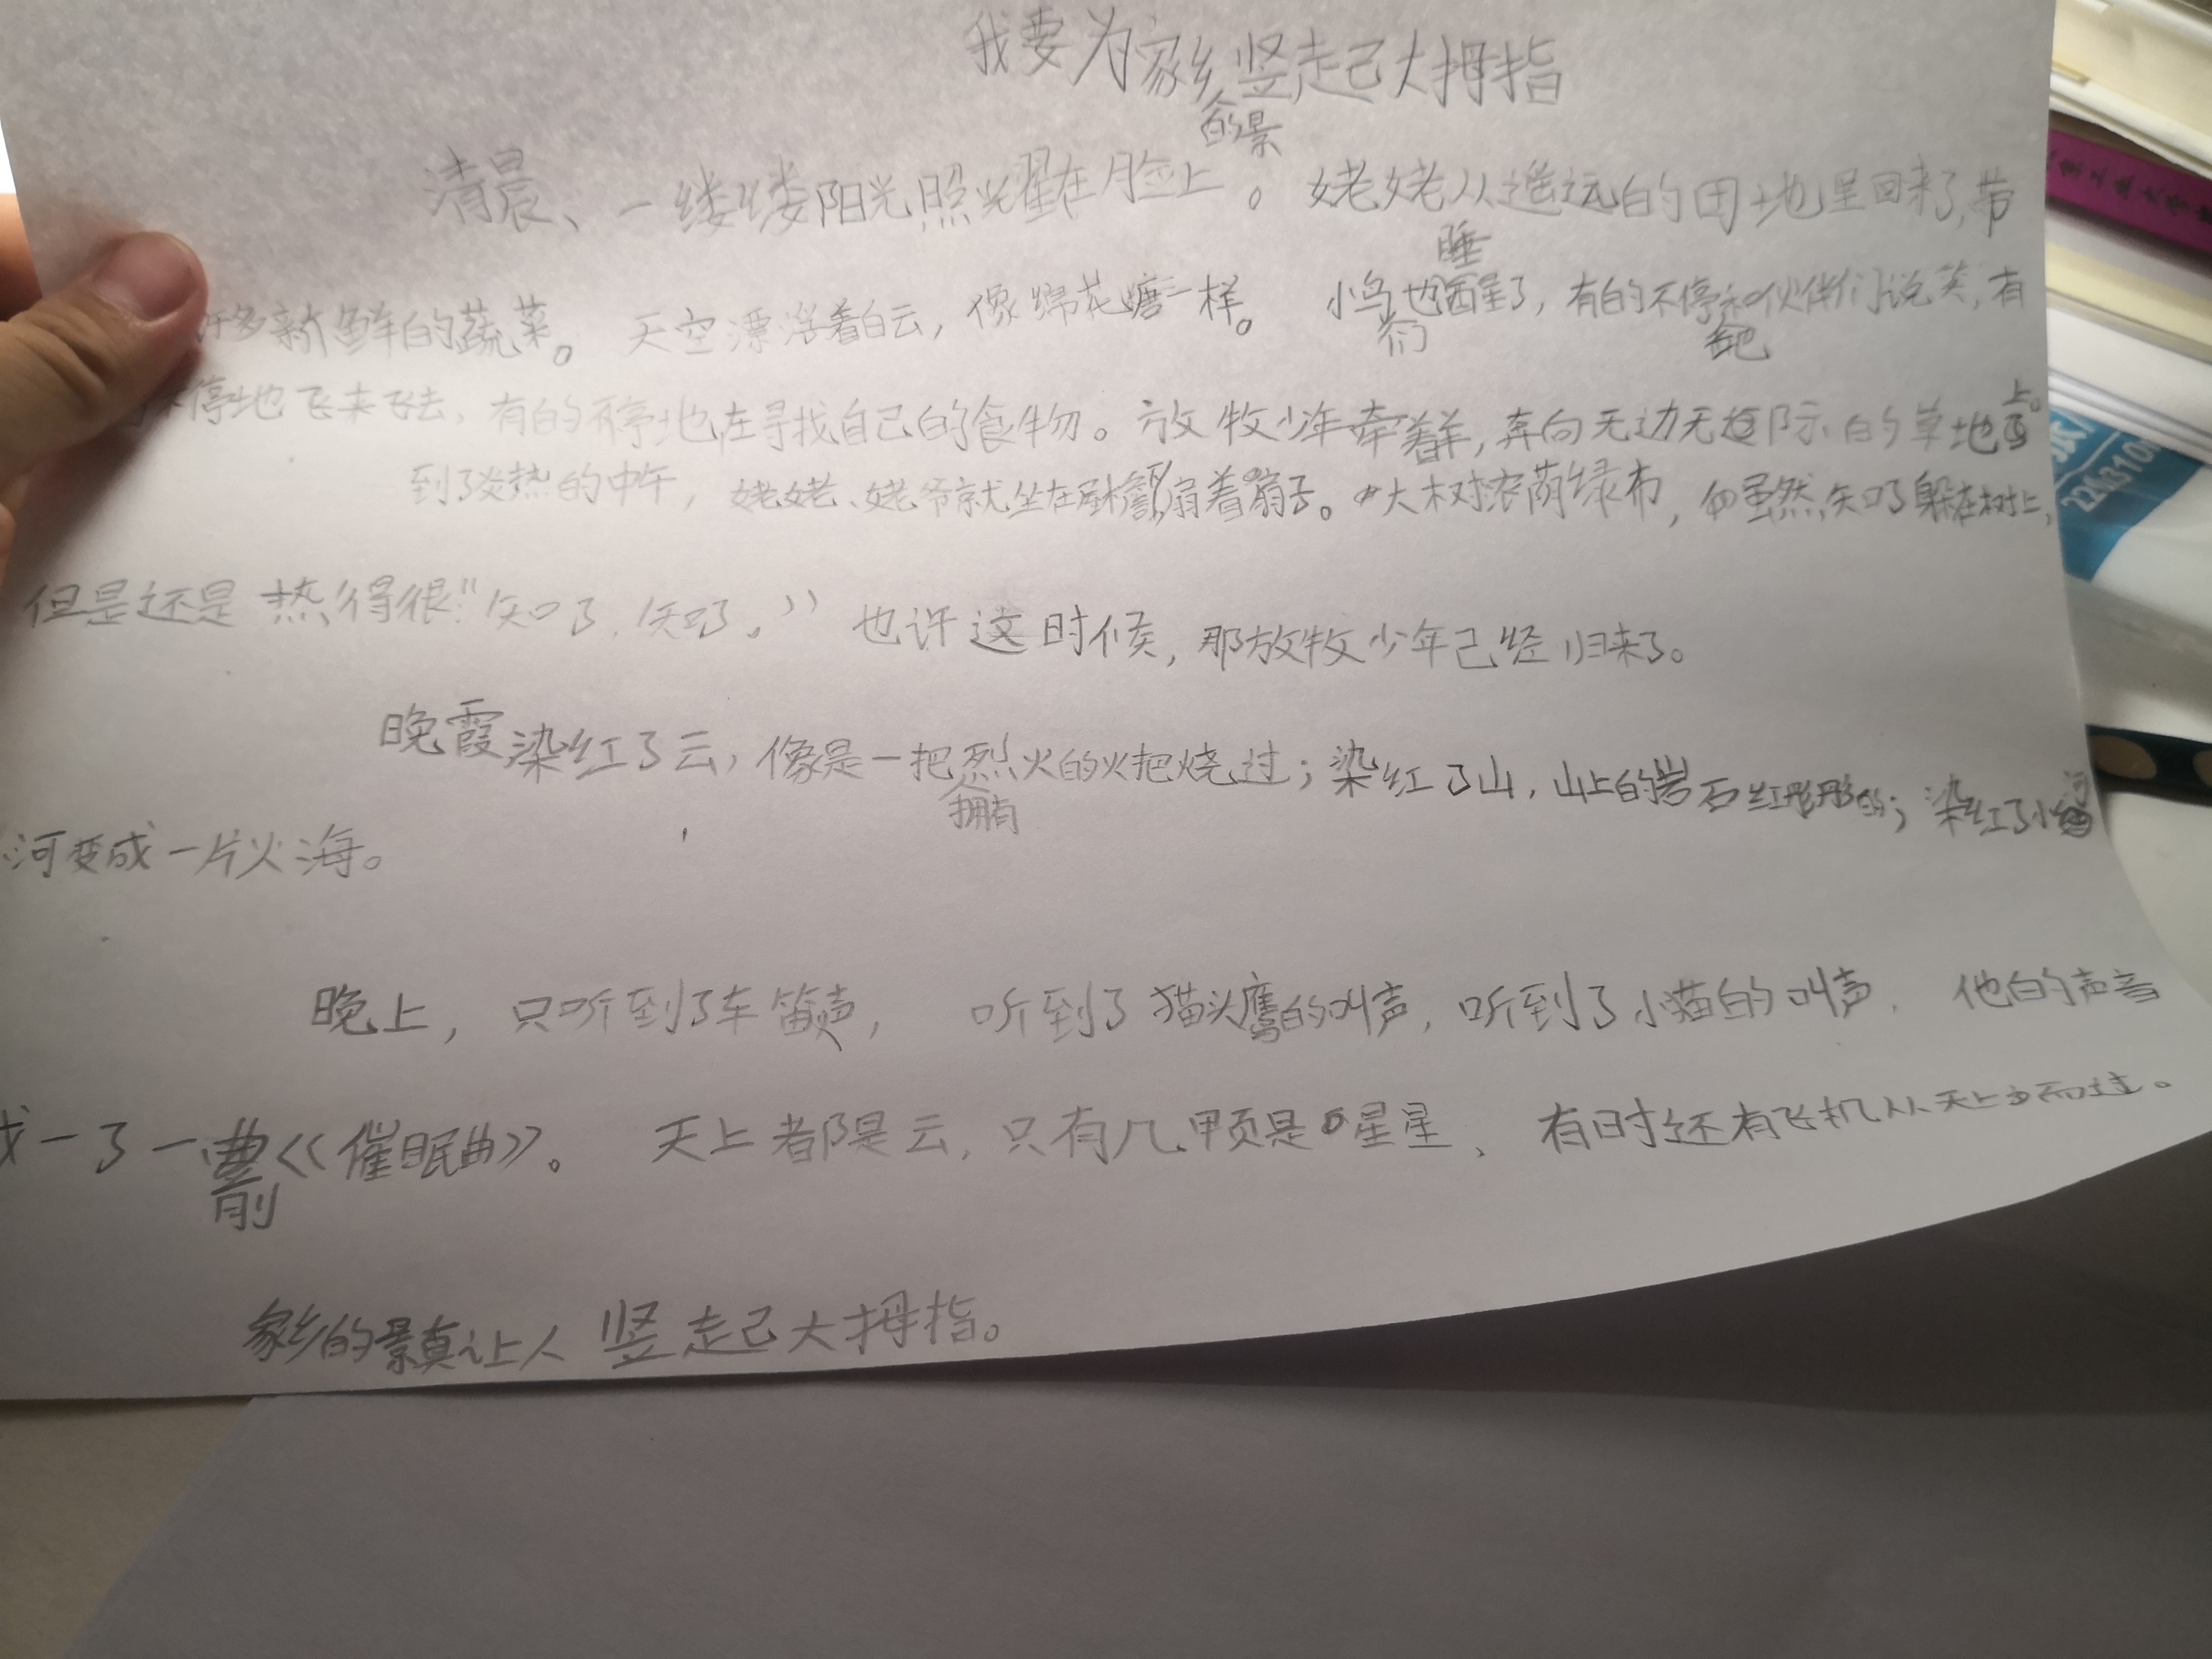 我要为家乡的景竖起己大拇指
清晨、一缕缕阳光照耀在脸上。姥姥从遥远的田地里回来了,带
许多新鲜的蔬菜。天空漂浮着白云,像绵花糖一样。小鸟们也睡醒了,有的不停和伙伴们说笑,有
不停地飞来飞去,有的不停地在寻找自己的食物。放牧少年牵着羊,奔向无边无际的草地上。
到了炎热的中午,姥姥、姥爷就坐在屋檐下,扇着扇子。大树浓荫绿布,虽然知了躲在树上,
但是还是热得很:“知了,知了。”也许这时候,那放牧少年已经归来了。
晚霞染红了云,像是一把拥有烈火的火把烧过;染红了山,山上的岩石红彤彤的;染红了小河
河变成一片火海。
晚上,只听到了车笛声,听到了猫头鹰的叫声,听到了小猫的叫声,他的声音
成一了一曲《催眠曲》。天上都是云,只有几颗是星星,有时还有飞机从天上方而过。
家乡的景真让人竖起己大拇指。
2203100